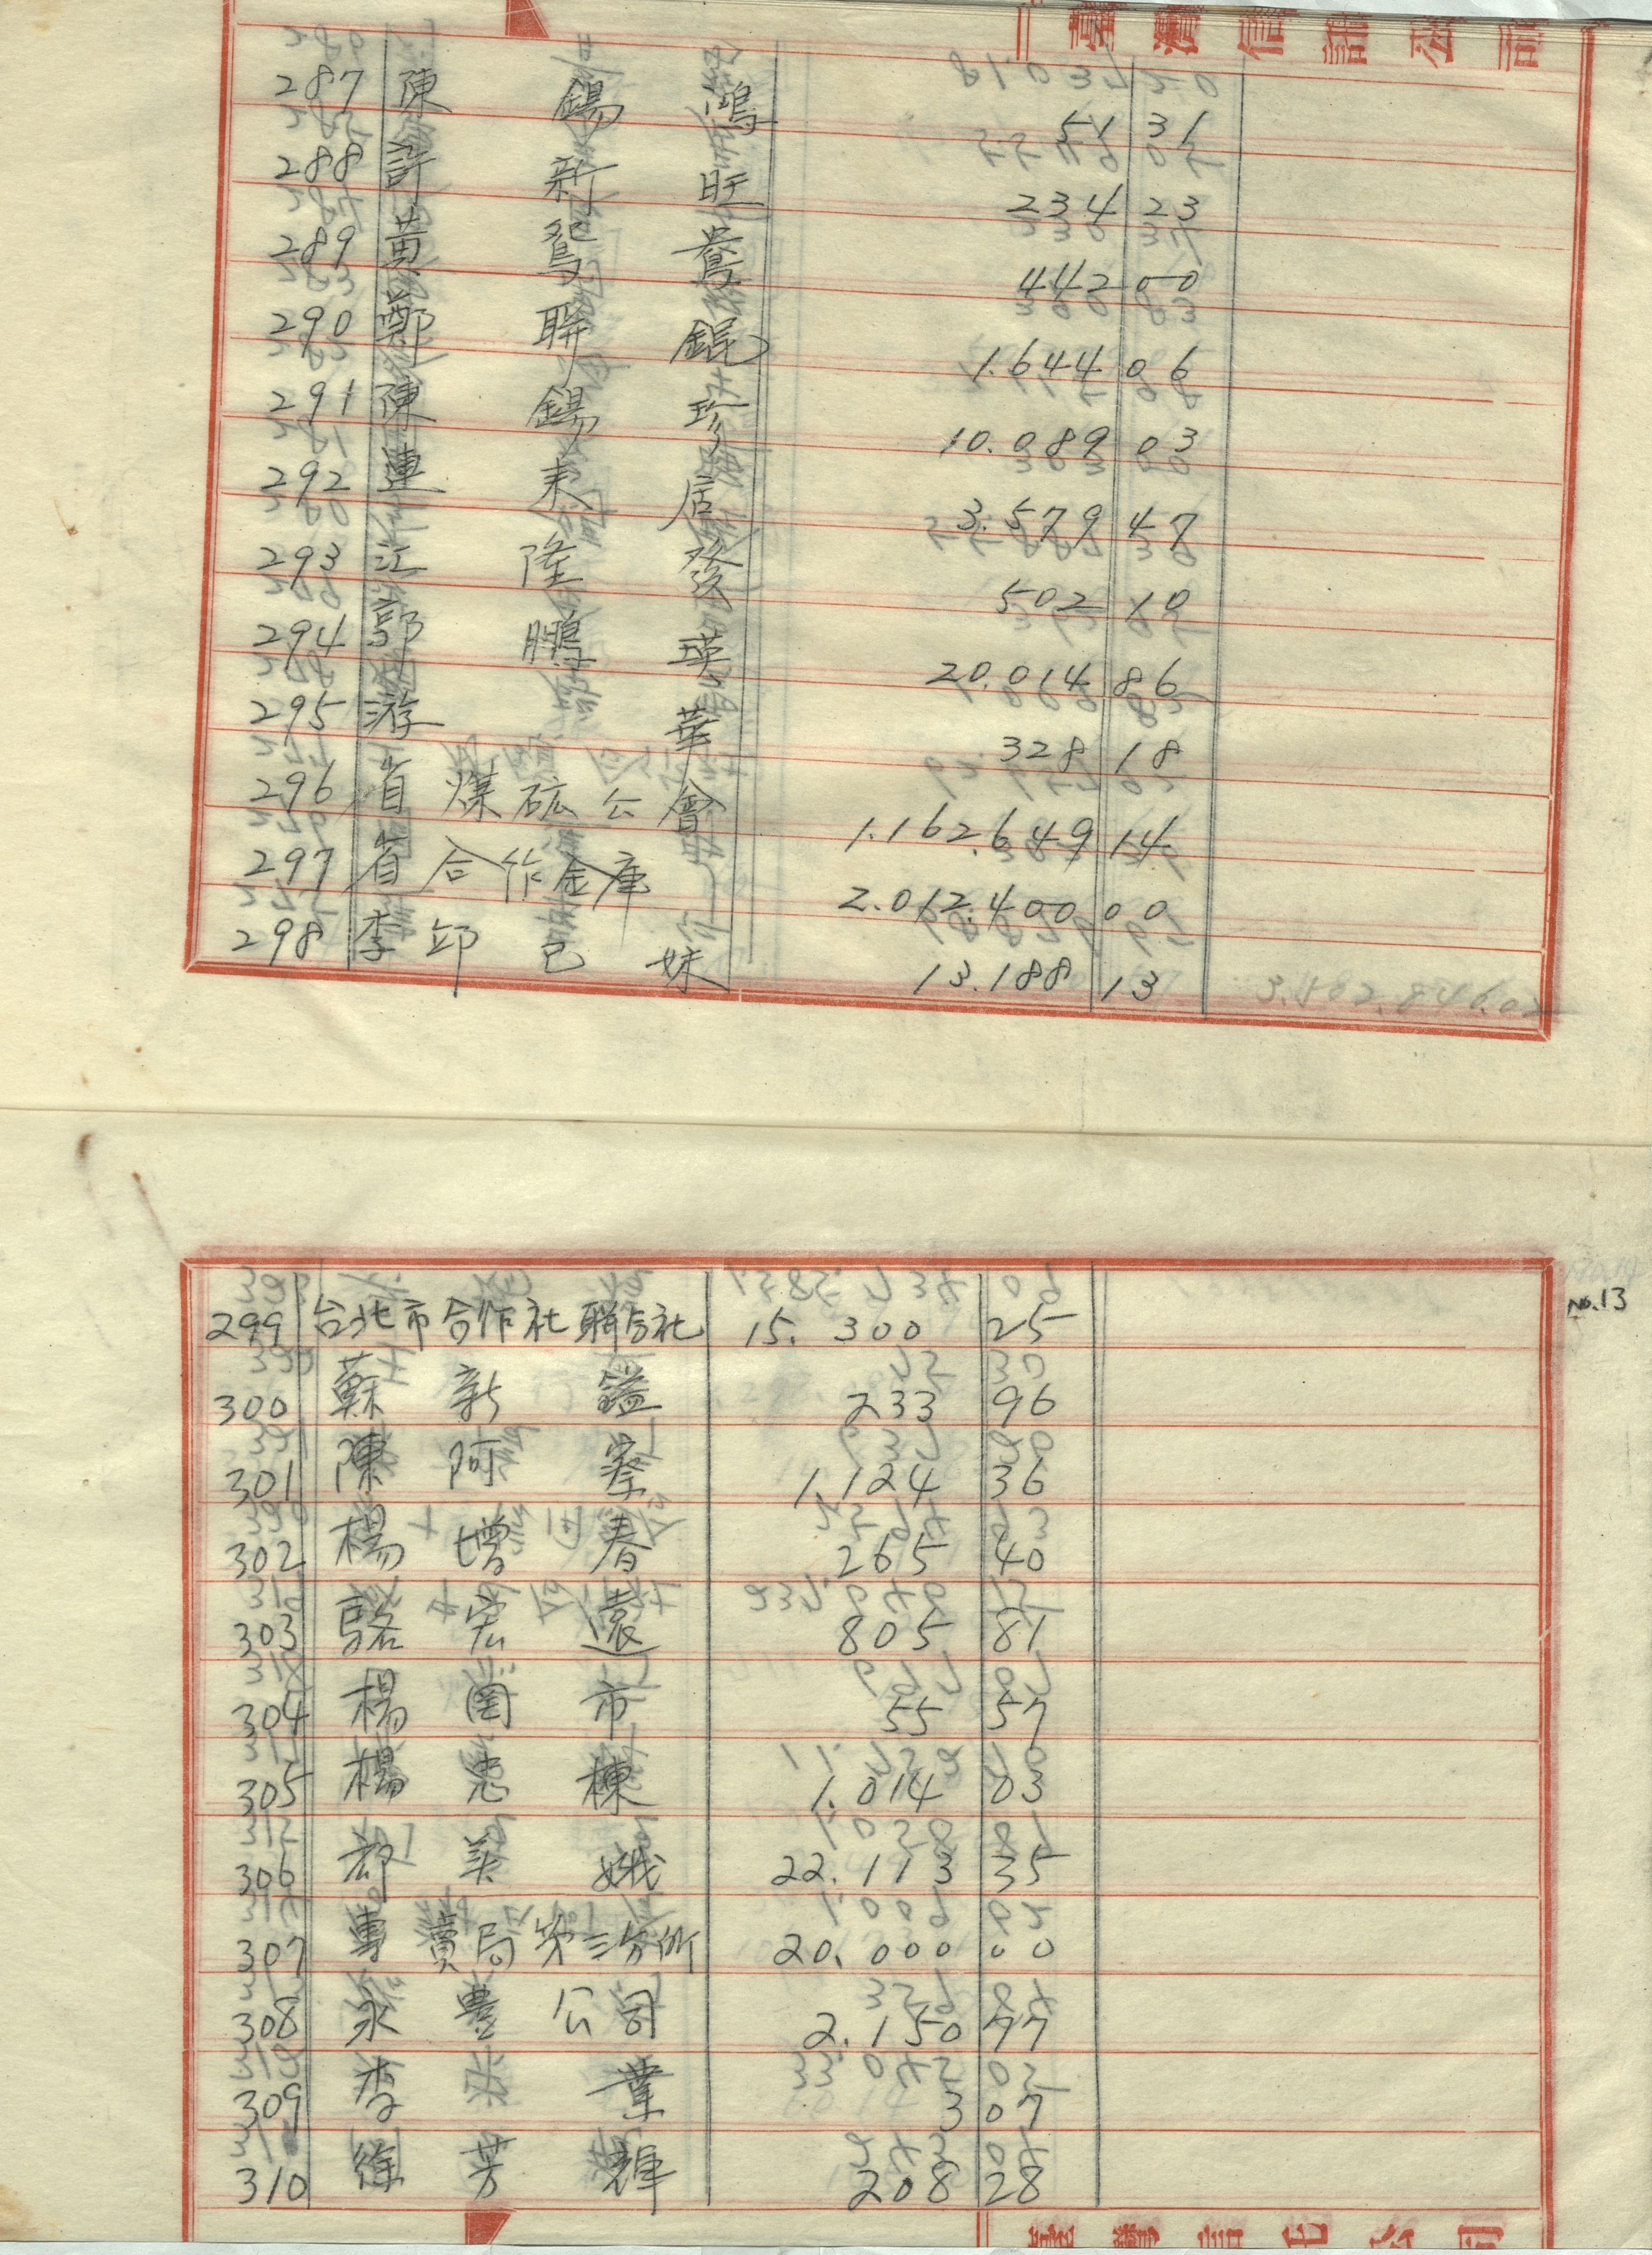 臺灣信託公司
287 陳錫鴻 51 31
288 許新旺 234 23
289 黃鴛鴦 442 00
290 鄭聯錕 1.644 06
291 陳錫珍 10.089 03
292 連耒居 3.579 47
293 江隆發 502 10
294 郭鵬瑛 20.014 86
295 游華 328 18
296 省煤砿公會 1.162.649 14
297 省合作金庫 2.012.400 00
298 李邱已妹 13.188 13
No.13
299 台北市合作社聯合社 15.300 25
300 蘇新鎰 233 96
301 陳阿 1.124 36
302 楊增春 265 40
303 駱宏遠 805 81
304 楊市 55 57
305 楊惠棟 1.014 03
306 美娥 22.113 35
307 專賣局第三分所 20.000 00
308 永豐公司 2.150 77
309 李業 3 07
310 徐芳輝 208 28